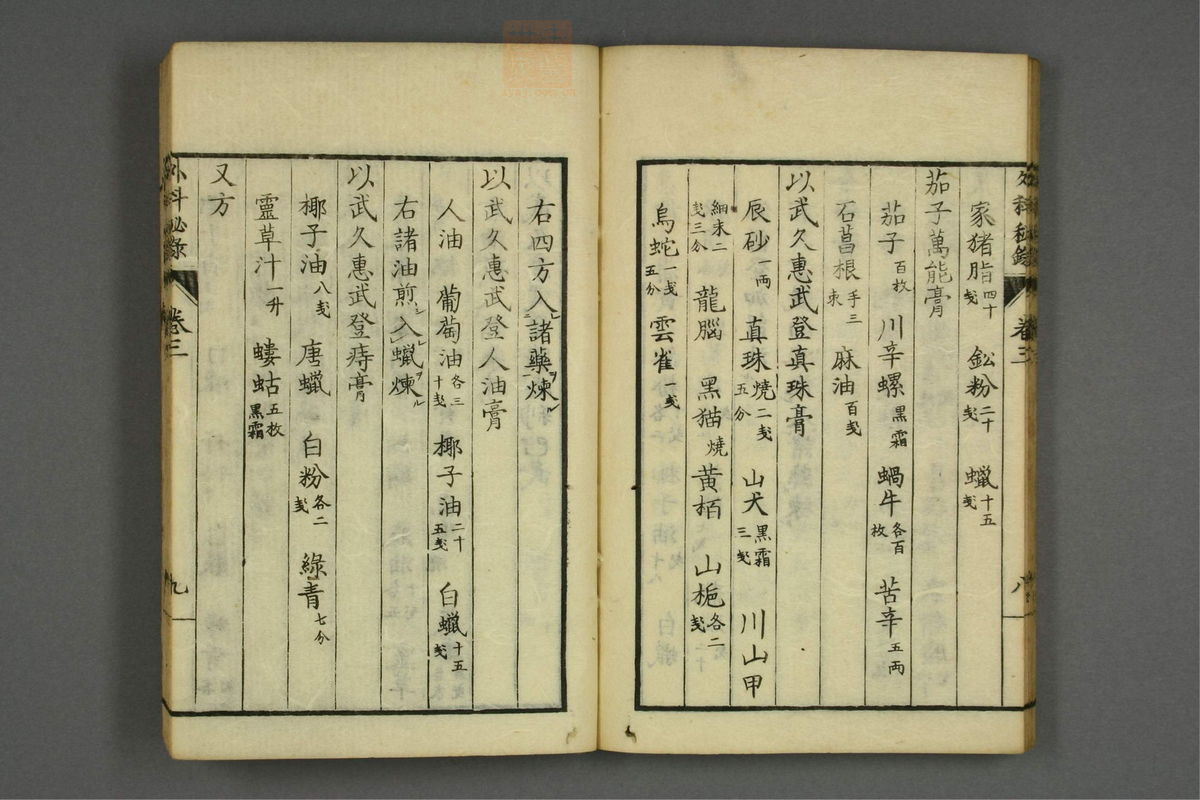 外科秘錄 卷三 八
家猪脂四十戔 鈆粉二十戔 蠟十五戔
茄子萬能膏
茄子百枚 川辛螺黒霜 蝸牛各百枚 苦辛五両
石菖根手三束 麻油百戔
以武久惠武登真珠膏
辰砂一両 真珠燒二戔五分 山犬黒霜三戔 川山甲
細末二戔三分 龍腦 黒猫燒 黄栢 山梔各二戔
烏蛇一戔五分 雲雀一戔
右四方入諸藥煉
以武久惠武登人油膏
人油 葡萄油各三十戔 椰子油二十五戔 白蠟十五戔
右諸油煎入蠟煉
以武久惠武登痔膏
椰子油八戔 唐蠟 白粉各二戔 綠青七分
靈草汁一升 螻蛄五枚黒霜
又方
外科秘錄 卷三 九